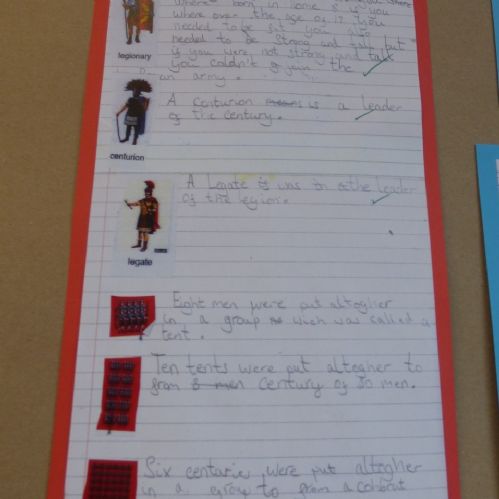 where born in Rome & if you
where over the age of 17. You
needed to be you also
needed to be strong and tall but
if you were not strong and tall
you couldn't join the
legionary
an army.
A centurion is a leader
of the century.
centurion
A Legate was the leader
of the legion.
legate
Eight men were put altogher
in a group wich was called a
tent.
Ten tents were put altegher to
from 8 men century of 80 men.
Six centarie were put altogher
in a group to from a cohorat